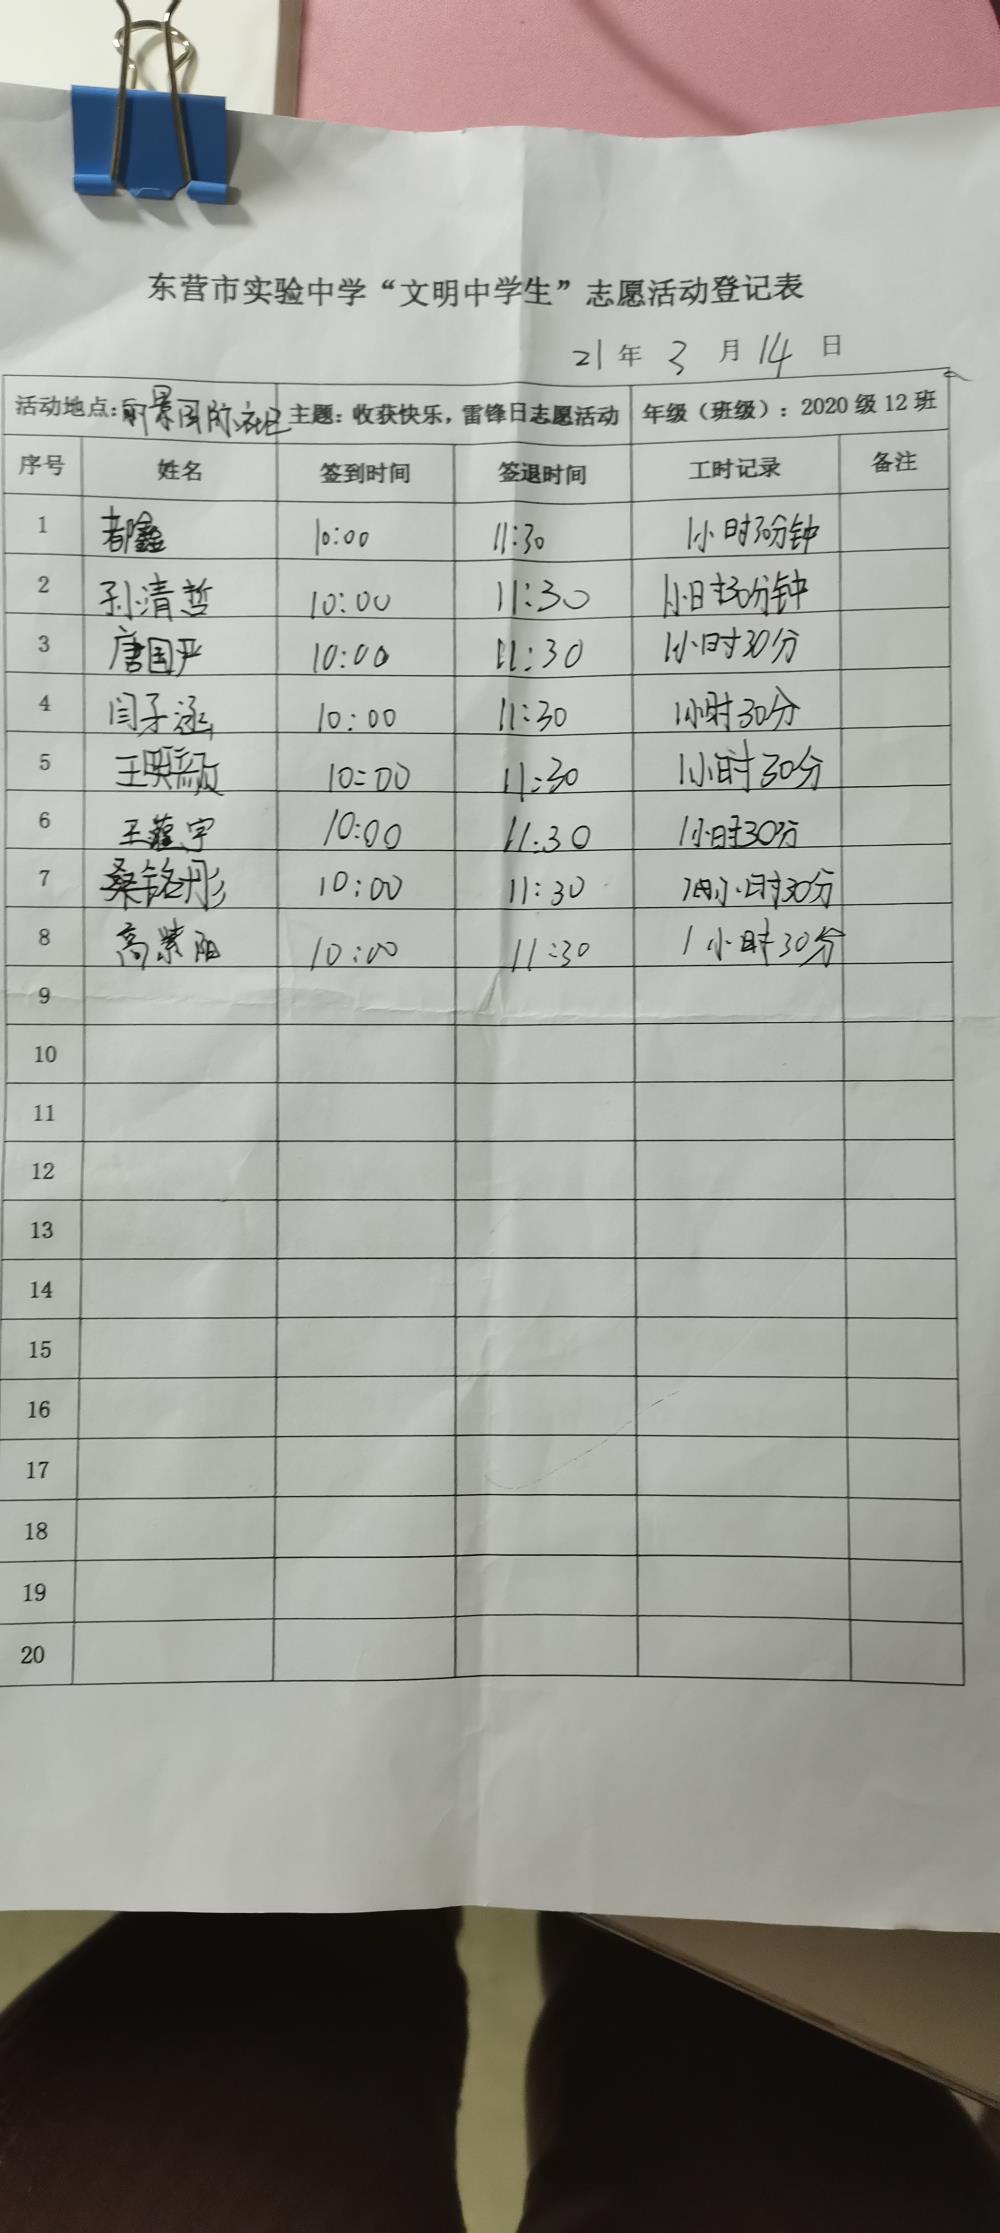 东营市实验中学“文明中学生”志愿活动登记表
21年 3 月 14 日
活动地点: 主题：收获快乐，雷锋日志愿活动 年级（班级）：2020级12班
序号 姓名 签到时间 签退时间 工时记录 备注
1 都鑫 10:00 11:30 1小时30分钟
2 孙清哲 10:00 11:30 1小时30分钟
3 唐国严 10:00 11:30 1小时30分
4 闫子涵 10:00 11:30 1小时30分
5 王 10:00 11:30 1小时30分
6 王蕴宇 10:00 11:30 1小时30分
7 桑铭彤 10:00 11:30 小时30分
8 高紫阳 10:00 11:30 1小时30分
9
10
11
12
13
14
15
16
17
18
19
20